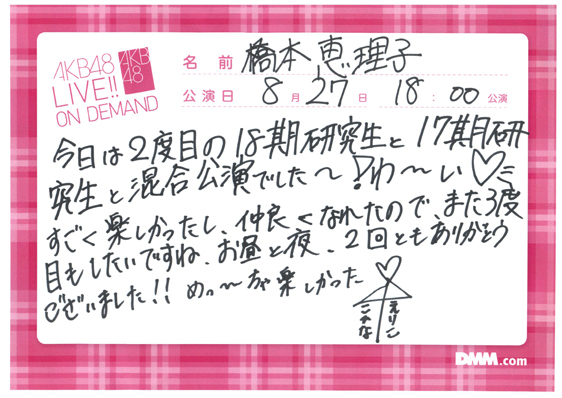 AKB48
LIVE!!
ON DEMAND
AKB
48
名前 橋本恵理子
公演日 8月27日 18:00公演
今日は2度目の18期研究生と17期研
究生と混合公演でした〜!わ〜い♡
すごく楽しかったし、仲良くなれたので、また3度
目もしたいですね、お昼と夜、2回ともありがとう
ございました!! めっ〜ちゃ楽しかった
えりこ
DMM.com